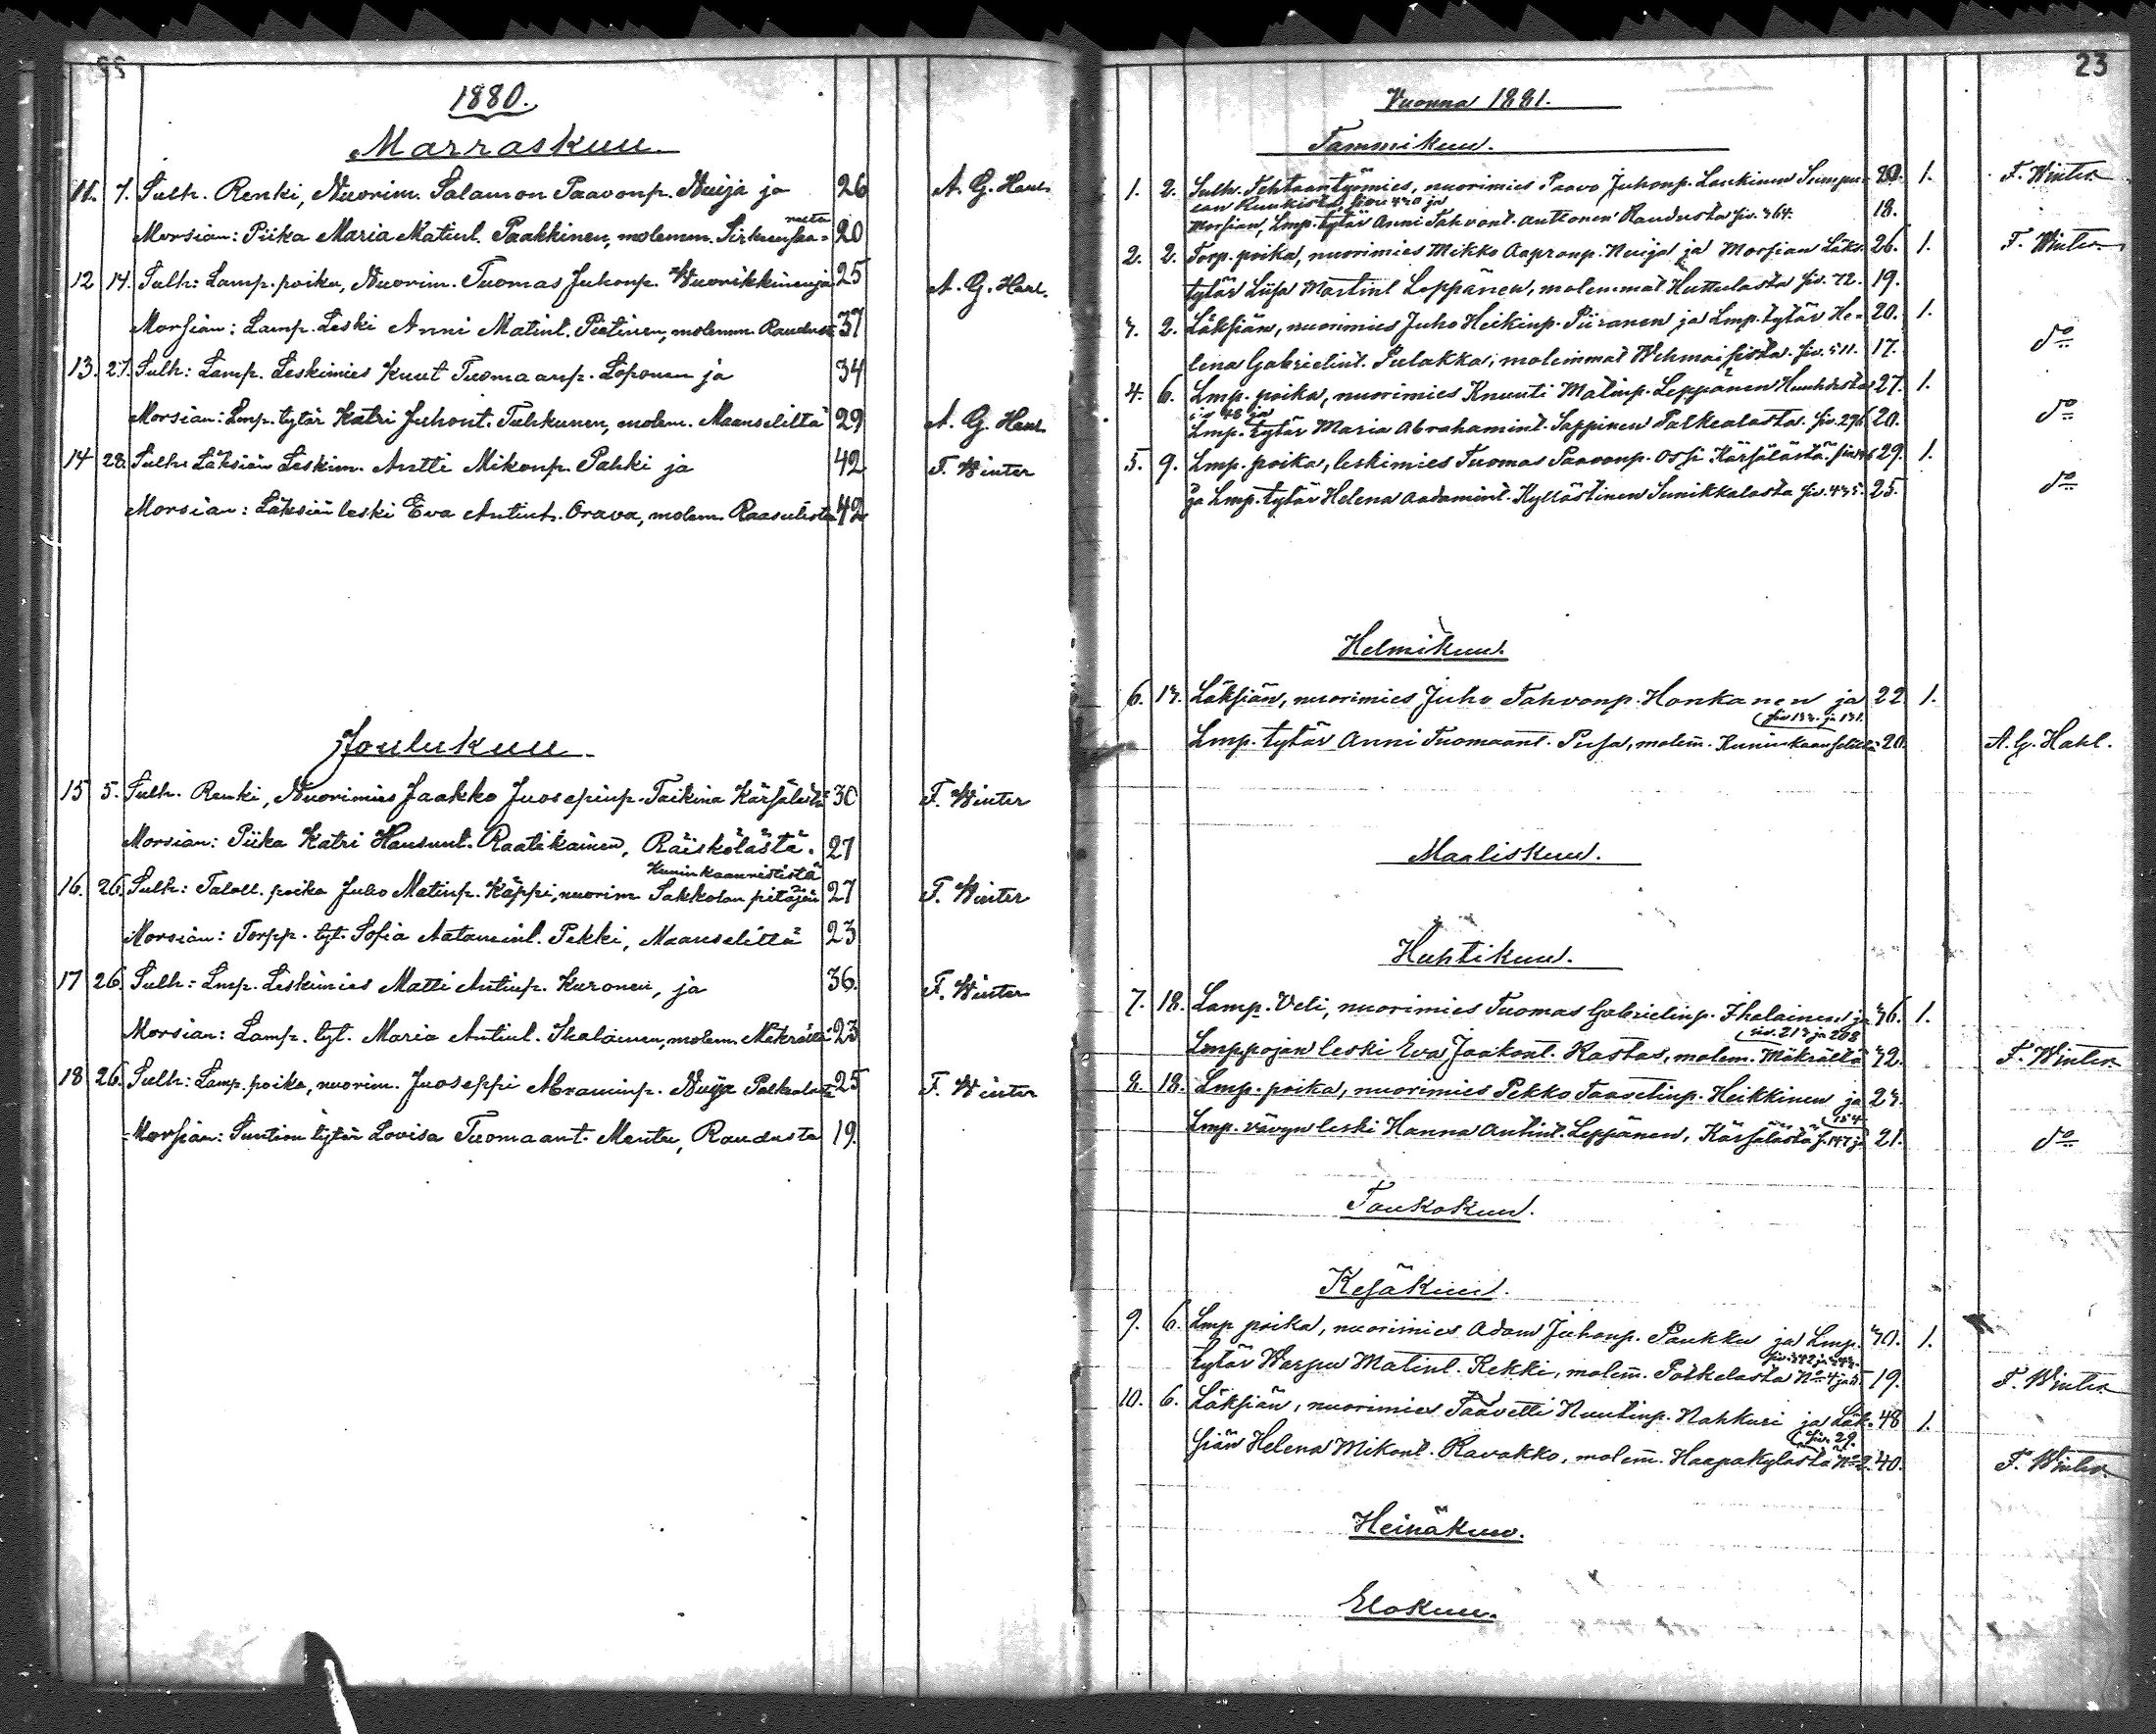 1880.
Marraskuu.
11. 7. Sulh. Renki, Nuorim. Salamon Paavonp. Nuija ja 26 A. G. Hahl
Morsian: Piika Maria Matint. Paakkinen, molemm. Sirkiensaa= 20
relta
12 14. Sulh: Lamp. poika, Nuorim. Tuomas Juhonp. Wuorikkinen ja 25 A. G. Hahl.
Morsian: Lamp. Leski Anni Matint. Pietinen, molemm. Raudust. 37
13. 27. Sulh: Lamp. Leskimies Knut Tuomaanp. Loponen ja 34
Morsian: Lmp. tytär Katri Juhont. Tuhkunen, molem. Maanseliltä 29 A. G. Hahl
14 28. Sulh. Läksiän Leskim. Antti Mikonp. Pahki ja 42 F. Winter
Morsian: Läksiän leski Eva Antint. Orava, molem. Raasulista 42
Joulukuu
15 5. Sulh. Renki, Nuorimies Jaakko Juosepinp. Taikina Kärsäläst. 30 F. Winter
Morsian: Piika Katri Hannunt. Raatikainen, Räiskölästä. 27
Kuninkaanrististä
16. 26. Sulh: Taloll. poika Juho Matinp. Käppi, nuorim Sakkolan pitäjän 27 F. Winter
Morsian: Torpp. tyt. Sofia Aatamint. Pekki, Maanseliltä 23
17 26. Sulh: Lmp. Leskimies Matti Antinp. Kuronen, ja 36. F. Winter
Morsian: Lamp. tyt. Maria Antint. Ihalainen, molem. Mäkrältä 23
18 26. Sulh: Lamp. poika, nuorim. Juoseppi Abraminp. Nuija Palkealasta 25 F. Winter
Morsian: Suntion tytär Lovisa Tuomaant. Mentu, Raudusta 19.
23
Vuonna 1881.
Tammikuu.
1. 2. Sulh. Tehtaantyömies, nuorimies Paavo Juhonp. Laukinen Sumpu= 20. 1. F. Winter
lan Ruukista sivu 420 ja
Morsian, Lmp. tytär Anni Tahvont. Anttonen Raudusta siv. 364. 18.
2. 2. Torp. poika, nuorimies Mikko Aapronp. Nuija ja Morsian Läks. 26. 1. F. Winter
tytär Liisa Martint Leppänen, molemmat Huttulasta siv. 72. 19.
3. 2. Läksiän, nuorimies Juho Heikinp. Piiranen ja Lmp. tytär He= 20. 1.
lena Gabrielint. Pulakka, molemmat Wehmaisista. siv. 511. 17. do
4. 6. Lmp. poika, nuorimies Knuuti Matinp. Leppänen Huuhdista 27. 1.
siv 48 ja
Lmp. tytär Maria Abrahamint. Sappinen Palkealasta. siv. 276. 20. do
5. 9. Lmp. poika, leskimies Tuomas Paavonp. Ossi Kärsälästä. 29. 1.
ja Lmp. tytär Helena Aadamint. Kyllästinen Sunikkalasta siv. 435. 25. do
Helmikuu.
6. 13. Läksiän, nuorimies Juho Tahvonp. Honkanen ja 22. 1.
siv 133. ja 131.
Lmp. tytär Anni Tuomaant. Pusa, molem̄. Kuninkaanseliltä 20. A. G. Hahl.
Maaliskuu.
Huhtikuu.
7. 18. Lamp. Veli, nuorimies Tuomas Gabrielinp. Ihalainen ja 36. 1.
siv. 213 ja 208
Lmp. pojan leski Eva Jaakont. Kastas, molem. Mäkrältä 32. F. Winter
8. 18. Lmp. poika, nuorimies Pekko Taavetinp. Heikkinen ja 23.
154
Lmp. vävyn leski Hanna Antint. Leppänen, Kärsälästä s. 147 ja 21. do
Toukokuu.
Kesäkuu.
9. 6. Lmp poika, nuorimies Adam Juhonp. Paukku ja Lmp. 30. 1.
tytär Warpu Matint. Rekki, molem̄. Palkealasta No 4 ja 5. 19. F. Winter
10. 6. Läksiän, nuorimies Taavetti Nuutinp. Nahkuri ja Läk= 48 1.
siv. 29.
siän Helena Mikont. Ravakko, molem̄. Haapakylästä No 2. 40. F. Winter
Heinäkuu.
Elokuu.